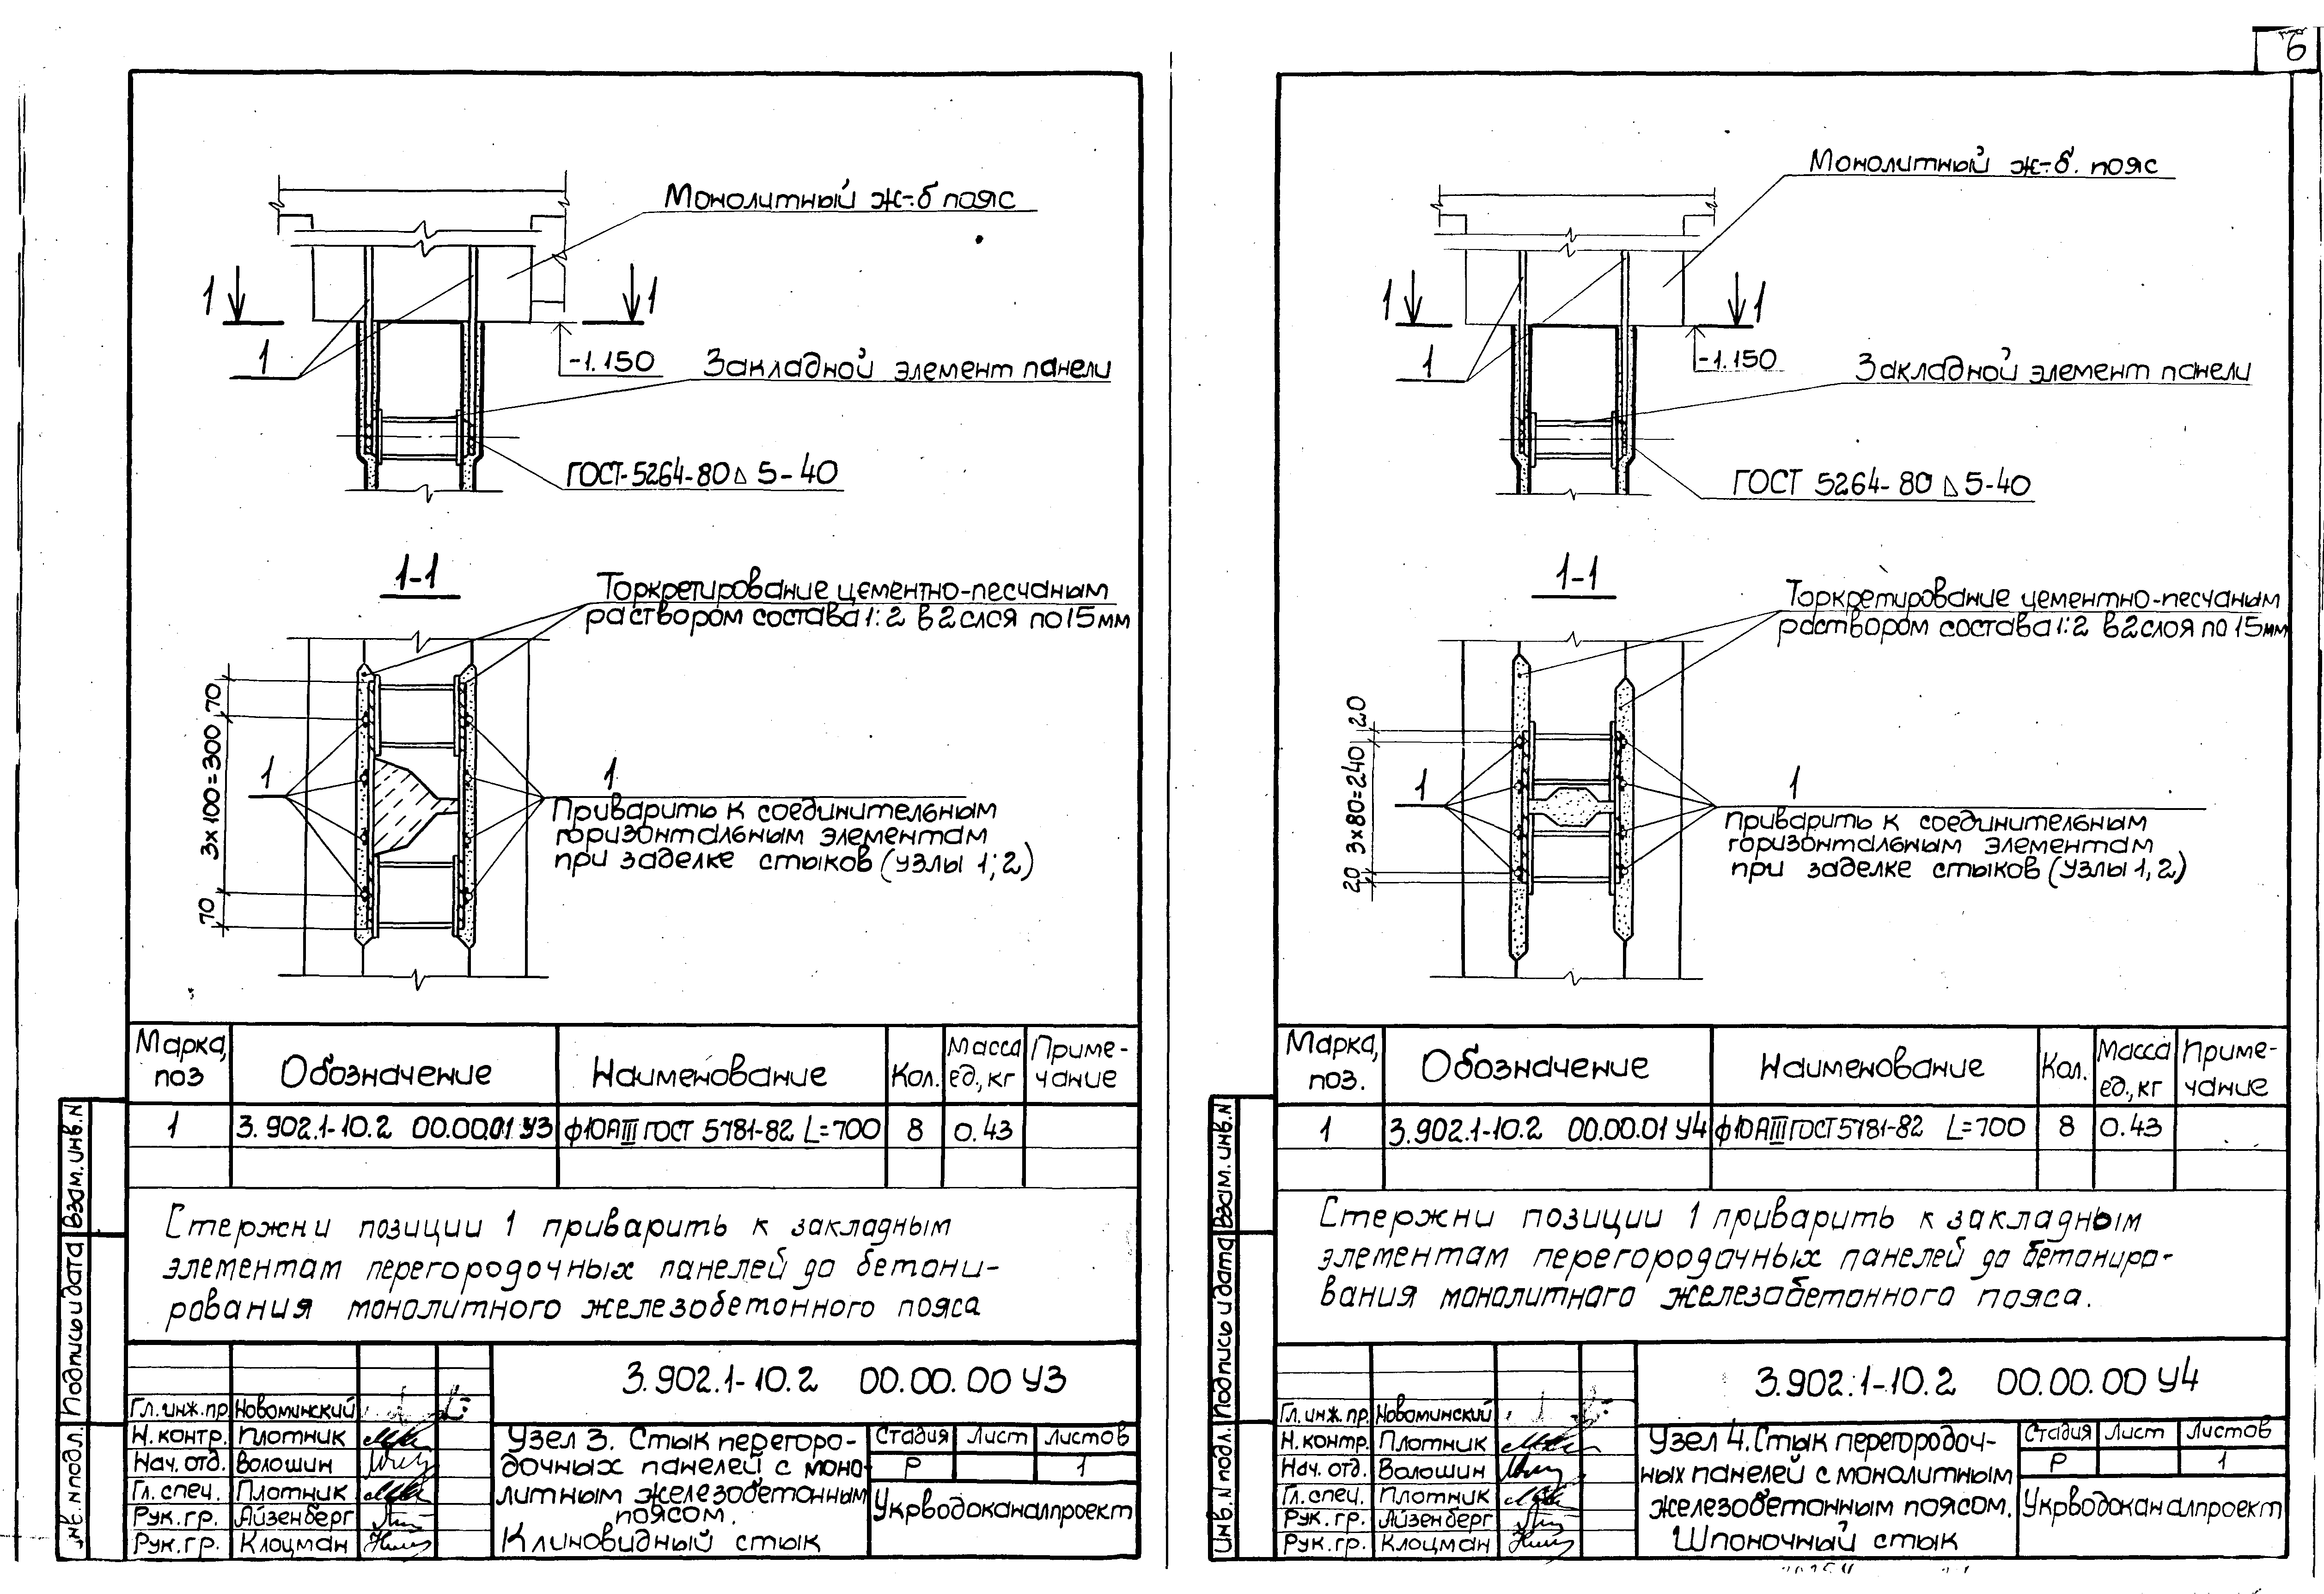 6
Монолитный ж-б пояс
1
1
1
-1.150
Закладной элемент панели
ГОСТ-5264-80 ⊿ 5-40
1-1
Торкретирование цементно-песчаным
раствором состава 1:2 в 2 слоя по 15 мм
70
3х100=300
70
1
1
Приварить к соединительным
горизонтальным элементам
при заделке стыков (узлы 1;2)
Марка, поз
Обозначение
Наименование
Кол.
Масса ед., кг
Приме-
чание
1
3.902.1-10.2 00.00.01 У3
ф10АIII ГОСТ 5781-82 L=700
8
0.43
Стержни позиции 1 приварить к закладным
элементам перегородочных панелей до бетони-
рования монолитного железобетонного пояса
3.902.1-10.2 00.00.00 У3
Гл.инж.пр. Новоминский
Н.контр. Плотник
Нач.отд. Волошин
Гл.спец. Плотник
Рук.гр. Айзенберг
Рук.гр. Клоцман
Узел 3. Стык перегоро-
дочных панелей с моно-
литным железобетонным
поясом.
Клиновидный стык
Стадия Лист Листов
Р 1
Укрводоканалпроект
Взам.инв.N
Подпись и дата
инв.N подл.
Монолитный ж-б. пояс
1
1
1
-1.150
Закладной элемент панели
ГОСТ 5264-80 ⊿ 5-40
1-1
Торкретирование цементно-песчаным
раствором состава 1:2 в 2 слоя по 15 мм
20
3х80=240
20
1
1
приварить к соединительным
горизонтальным элементам
при заделке стыков (узлы 1,2)
Марка, поз.
Обозначение
Наименование
Кол.
Масса ед., кг
Приме-
чание
1
3.902.1-10.2 00.00.01 У4
ф10АIII ГОСТ 5781-82 L=700
8
0.43
Стержни позиции 1 приварить к закладным
элементам перегородочных панелей до бетониро-
вания монолитного железобетонного пояса.
3.902.1-10.2 00.00.00 У4
Гл.инж.пр. Новоминский
Н.контр. Плотник
Нач.отд. Волошин
Гл.спец. Плотник
Рук.гр. Айзенберг
Рук.гр. Клоцман
Узел 4. Стык перегородоч-
ных панелей с монолитным
железобетонным поясом.
Шпоночный стык
Стадия Лист Листов
Р 1
Укрводоканалпроект
Взам.инв.N
Подпись и дата
инв.N подл.